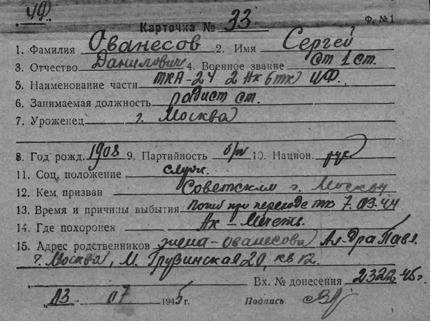 ЧФ.
Карточка № 33 Ф. № 1
1. Фамилия Ованесов 2. Имя Сергей
3. Отчество Данилович 4. Военное звание ст 1 ст.
5. Наименование части ТКА-24 2 бтк ЧФ.
6. Занимаемая должность радист ст.
7. Уроженец г. Москва
8. Год рожд. 1908 9. Партийность б/п 10. Национ. рус
11. Соц. положение служ.
12. Кем призван Советским г. Москвы
13. Время и причины выбытия Погиб при переходе тк 7.03.44
14. Где похоронен Ак-Мечеть.
15. Адрес родственников жена-Ованесова Ал-дра Павл.
г. Москва, М. Грузинская 20, кв 12.
Вх. № донесения 2322 45г.
13. 07 1945г. Подпись